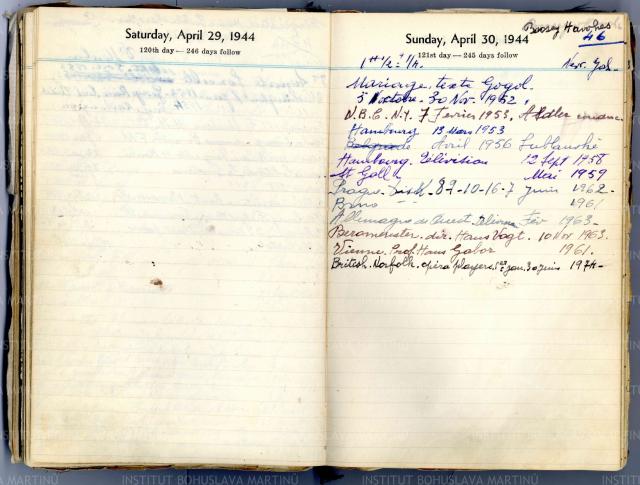 Saturday, April 29, 1944
120th day — 246 days follow
Sunday, April 30, 1944
121st day — 245 days follow
Boosey Hawkes
46
Mariage, texte Gogol.
30 Nov. 1952.
N.B.C. N.Y. 7 Fevrier 1953. Adler
Hamburg 13 Mars 1953
Belgrade Avril 1956 Lublaně
Hambourg. Télévision 12 Sept 1958
St Gall Mai 1959
Prague. Disk. 82-10-16-7 Juin 1962-
Brno 1961
Allemagne de Ouest Fév 1963-
Beromenster. dir. Hans Vogt. 10 Nov 1963.
Vienne. Prof. Hans Gabor 1961.
British. Norfolk. opera players. jan. 30 Juin 1974-
INSTITUT BOHUSLAVA MARTINŮ